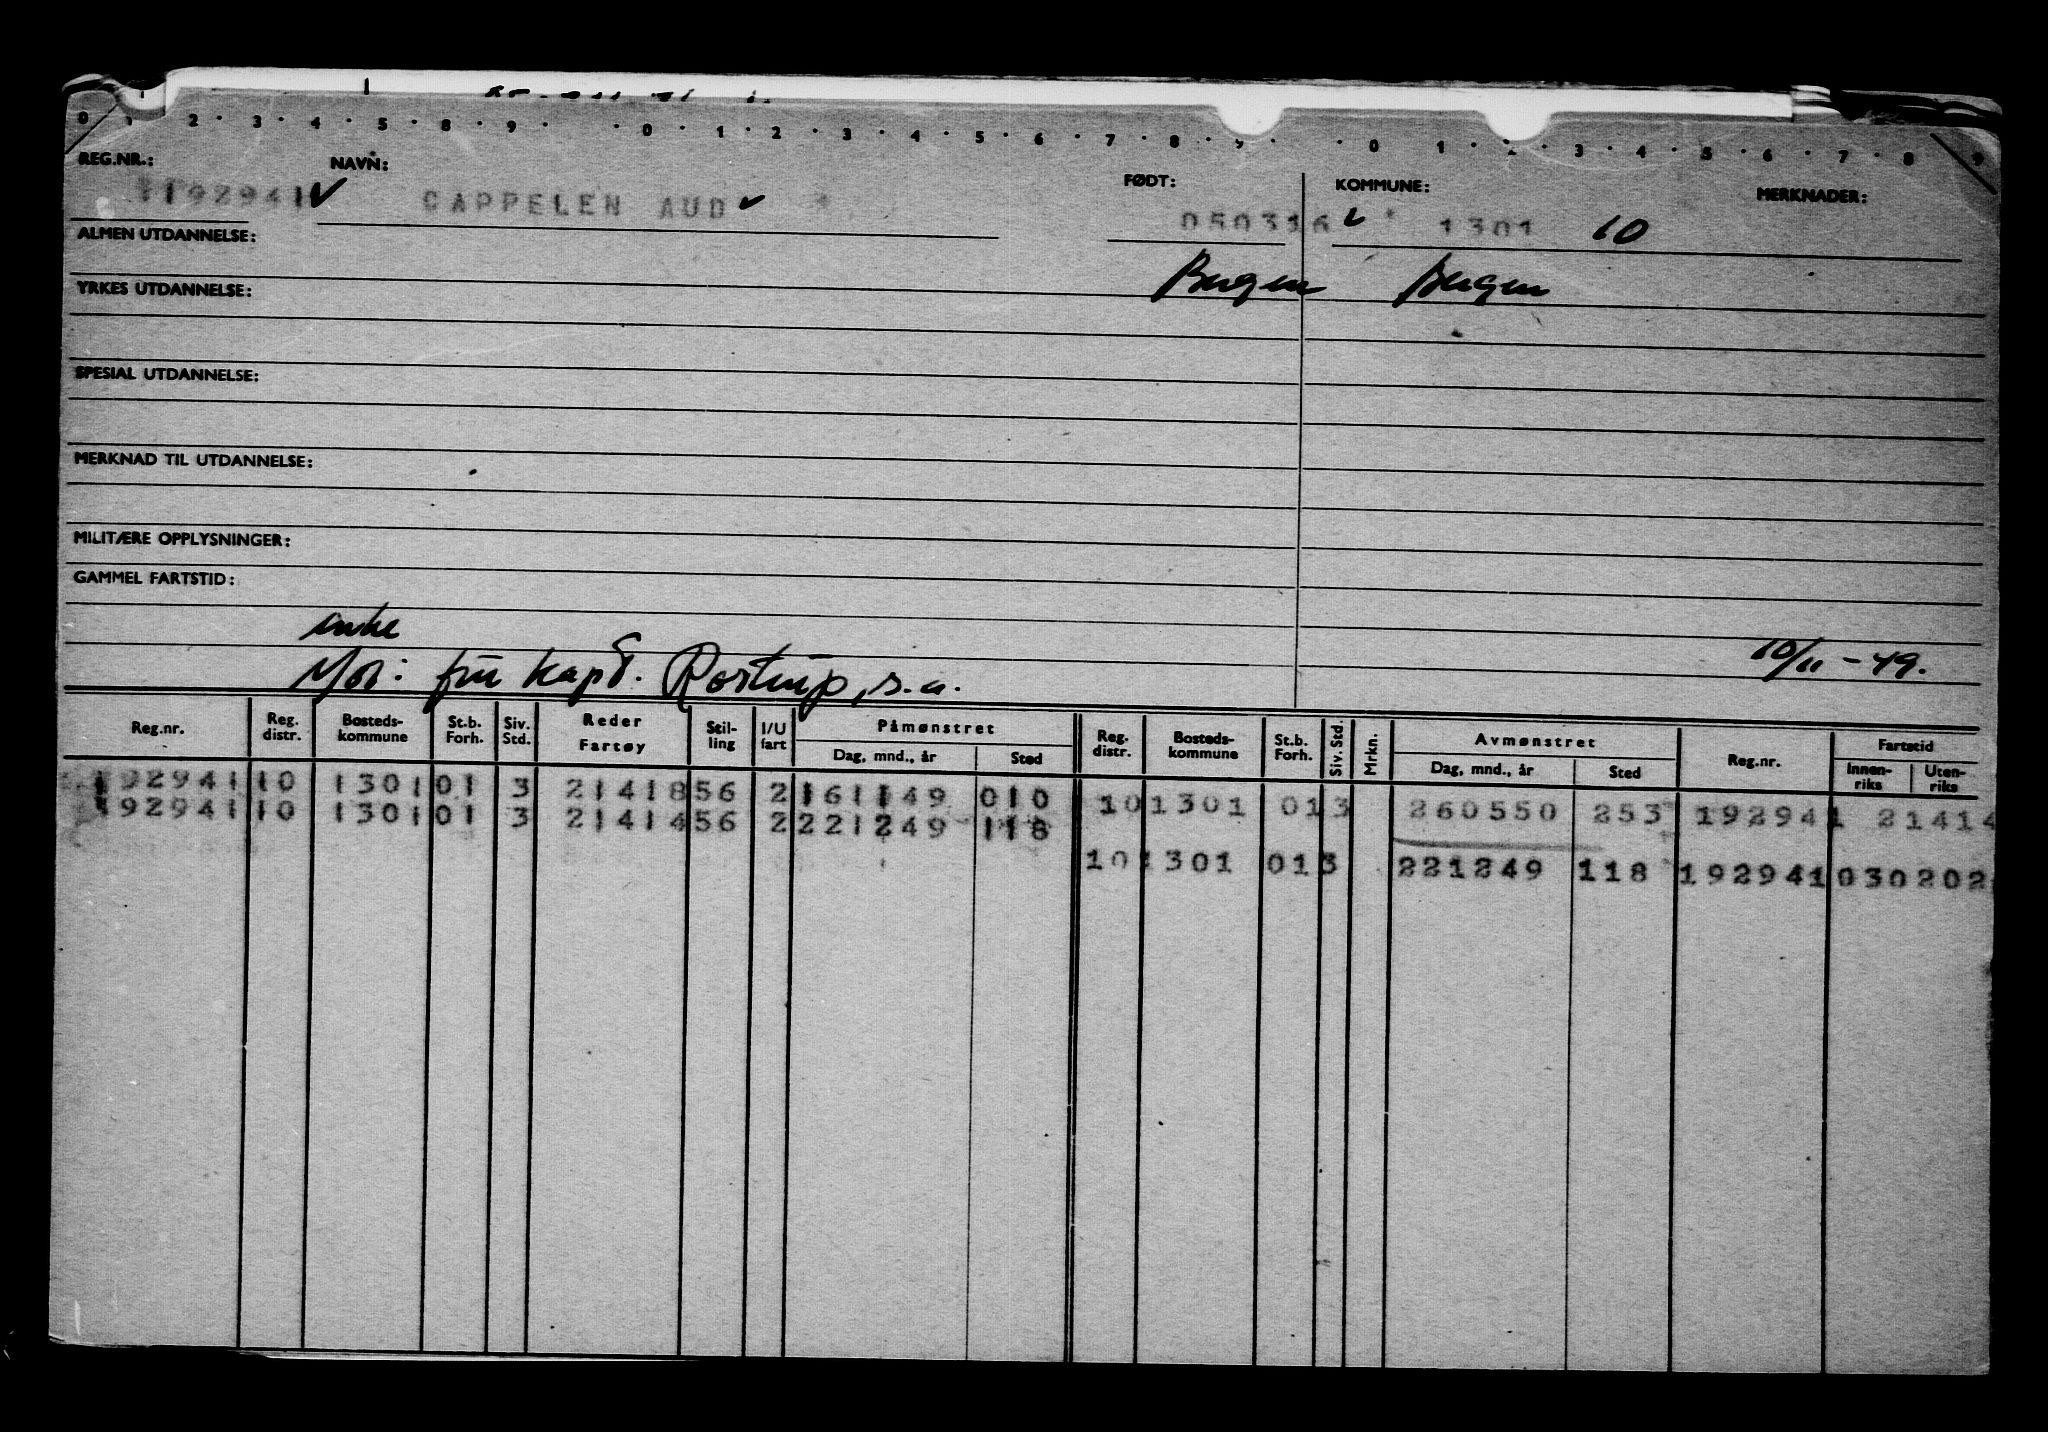 0 1 2 · 3 · 4 · 5 · 8 · 9 · · 0 · 1 · 2 · 3 · 4 · 5 · 6 · 7 · 8 · 9 · · 0 1 · 2 · 3 · 4 · 5 · 6 · 7 · 8 9
REG.NR.: NAVN: FØDT: KOMMUNE: MERKNADER:
192941 ✓ CAPPELEN AUD ✓ * 050316 ✓ * 1301 10
ALMEN UTDANNELSE:
Bergen Bergen
YRKES UTDANNELSE:
SPESIAL UTDANNELSE:
MERKNAD TIL UTDANNELSE:
MILITÆRE OPPLYSNINGER:
GAMMEL FARTSTID:
enke
Mor: fru kapt. Rostrup, s.a. 10/11 - 49.
Reg.nr. Reg. distr. Bosteds- kommune St.b. Forh. Siv. Std. Reder Fartøy Stil- ling I/U fart Påmønstret Dag, mnd., år Sted Reg. distr. Bosteds- kommune St.b. Forh. Siv. Std. Mrkn. Avmønstret Dag, mnd., år Sted Reg.nr. Fartstid Innen- riks Uten- riks
192941 10 1301 01 3 21418 56 2 161149 010 10 1301 01 3 260550 253 192941 21414
192941 10 1301 01 3 21414 56 2 221249 118
10 1301 01 3 221249 118 192941 030202